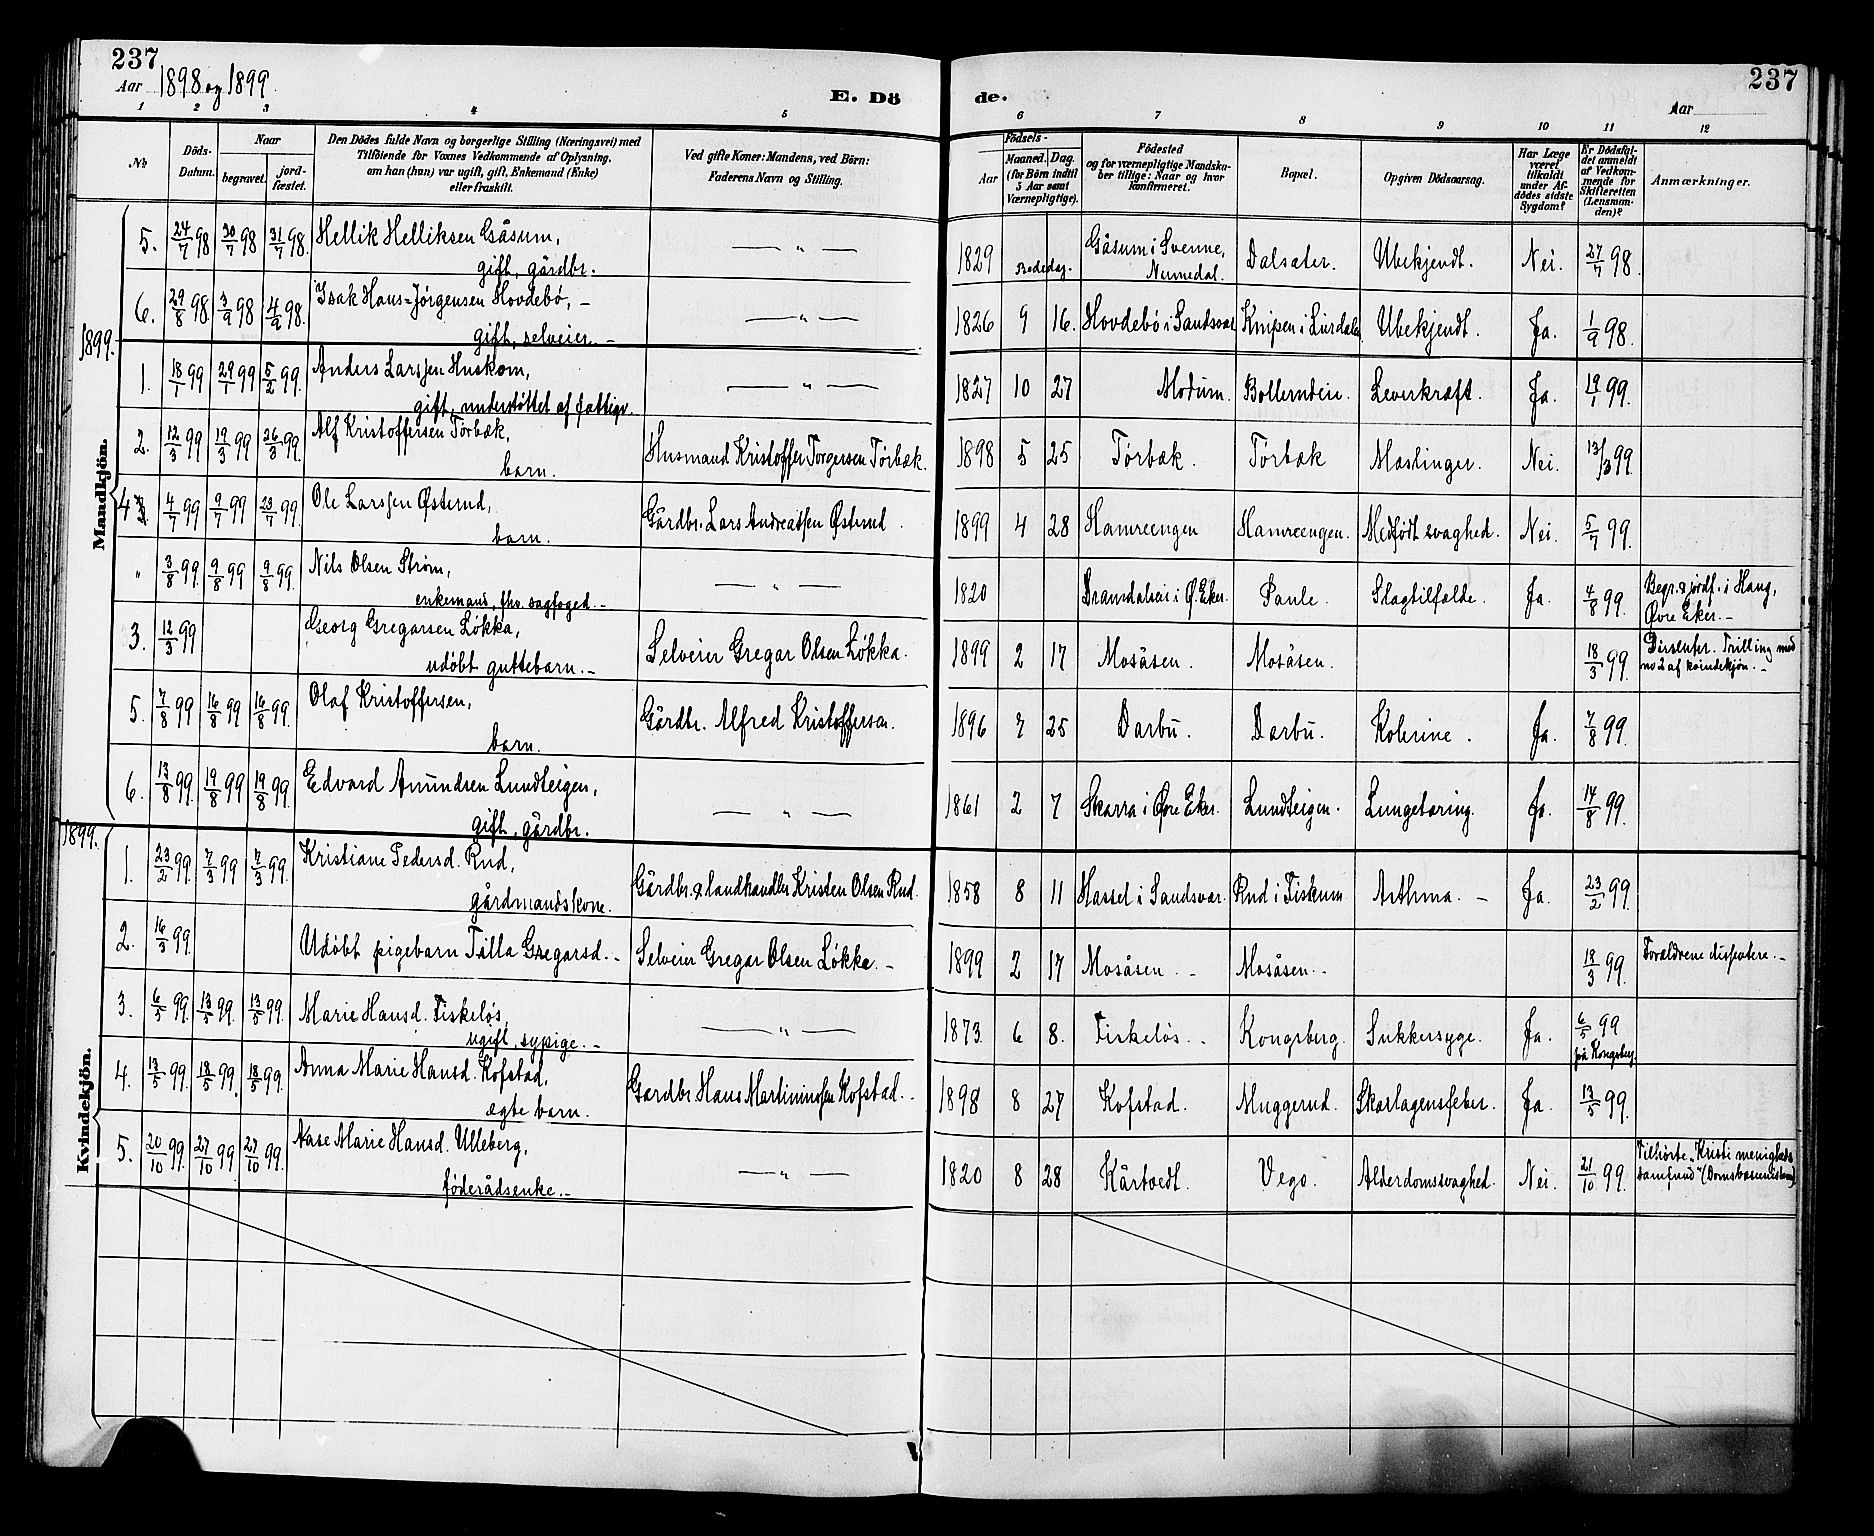 237
237
Aar 1898 og 1899
E. Dö de.
Aar
1 2 3 4 5 6 7 8 9 10 11 12
№
Döds-Datum.
Naar
begravet.
jord-fæstet.
Den Dödes fulde Navn og borgerlige Stilling (Næringsvei) med
Tilföiende for Voxnes Vedkommende af Oplysning,
om han (hun) var ugift, gift, Enkemand (Enke)
eller fraskilt.
Ved gifte Koner: Mandens, ved Börn:
Faderens Navn og Stilling.
Födsels-
Aar
Maaned. Dag.
(for Börn indtil
5 Aar samt
Værnepligtige).
Födested
og for værnepligtige Mandska-
ber tillige: Naar og hvor
konfirmeret.
Bopæl.
Opgiven Dödsaarsag.
Har Læge
været
tilkaldt
under Af-
dödes sidste
Sygdom?
Er Dödsfal-
det anmeldt
af Vedkom-
mende for
Skifteretten
(Lensman-
den)?
Anmærkninger.
Mandkjön.
5. 24/7 98 30/7 98 31/7 98. Hellik Helliksen Gåsum,
gift, gårdbr. — " — 1829 Bededag. Gåsum i Svenne,
Numedal. Dalsæter. Ubekjendt. Nei. 27/7 98.
6. 29/8 98 3/9 98 4/9 98. Isak Hans-Jørgensen Hovdebø, –
gift, selveier. – — " — 1826 9 16. Hovdebø i Sandsvær Knipen i Lurdalen Ubekjendt. Ja. 1/9 98.
1899.
1. 18/1 99 29/1 99 5/2 99. Anders Larssen Huskom,
gift, understøttet af fattigv. — " — 1827 10 27 Modum. Bollerudeie. Leverkræft. Ja. 19/1 99.
2. 12/3 99 19/3 99 26/3 99. Alf Kristoffersen Tørbæk,
barn. Husmand Kristoffer Torgersen Tørbæk. 1898 5 25 Tørbæk. Tørbæk Mæslinger. Nei. 13/3 99.
4 4/7 99 9/7 99 23/7 99. Ole Larssen Østerud,
barn. Gårdbr. Lars Andreassen Østerud. 1899 4 28 Hamreengen Hamreengen. Medfødt svaghed. Nei. 5/7 99.
" 3/8 99. 9/8 99 9/8 99 Nils Olsen Strøm,
enkemand, fhv. sagfoged. – — " — 1820 i Ø. Eker. Paule. Slagtilfælde. Ja. 4/8 99. Begr. & jordf. i Haug,
Øvre Eker. –
3. 12/3 99 Georg Gregarsen Løkka,
udøbt guttebarn. – Selveier Gregar Olsen Løkka. 1899 2 17 Mosåsen. Mosåsen. 18/3 99. Dissenter. Trilling med
no 2 af kvindekjøn. –
5. 7/8 99 16/8 99 16/8 99. Olaf Kristoffersen,
barn. Gårdbr. Alfred Kristoffersen. 1896 7 25 Darbu. Darbu. Kolerine. Ja. 7/8 99.
6. 13/8 99. 19/8 99 19/8 99. Edvard Amundsen Lundteigen,
gift, gårdbr. — " — 1861 2 7 Skarra i Øvre Eker. Lundteigen. Lungetæring. Ja. 14/8 99.
1899.
Kvindekjön.
1. 23/2 99. 7/3 99 7/3 99. Kristiane Pedersd. Rud,
gårdmandskone. Gårdbr. & landhandler Kristen Olsen Rud. 1858 8 11 Hassel i Sandsvær. Rud i Fiskum Asthma. – Ja. 23/2 99.
2. 16/3 99. Udøbt pigebarn Tilla Gregarsd. – Selveier Gregar Olsen Løkka. – 1899 2 17 Mosåsen. – Mosåsen. – 18/3 99. Forældrene dissentere. –
3. 6/5 99. 13/5 99. 13/5 99. Marie Hansd. Fiskeløs,
ugift, sypige. – — " — 1873. 6 8. Fiskeløs. – Kongsberg. Sukkersyge. Ja. 6/5 99
på Kongsberg.
4. 13/5 99. 18/5 99. 18/5 99. Anna Marie Hansd. Kofstad,
ægte barn. Gardbr. Hans Martiniussen Kofstad. 1898 8 27 Kofstad. Muggerud. Skarlagensfeber. Ja. 13/5 99.
5. 20/10 99. 27/10 99 27/10 99. Marie Hansd. Ulleberg,
føderådsenke. – — " — 1820 8 28 Kårtvedt. Vego. Alderdomssvaghed. Nei. 21/10 99. Tilhørte "Kristi menigheds
samfund"